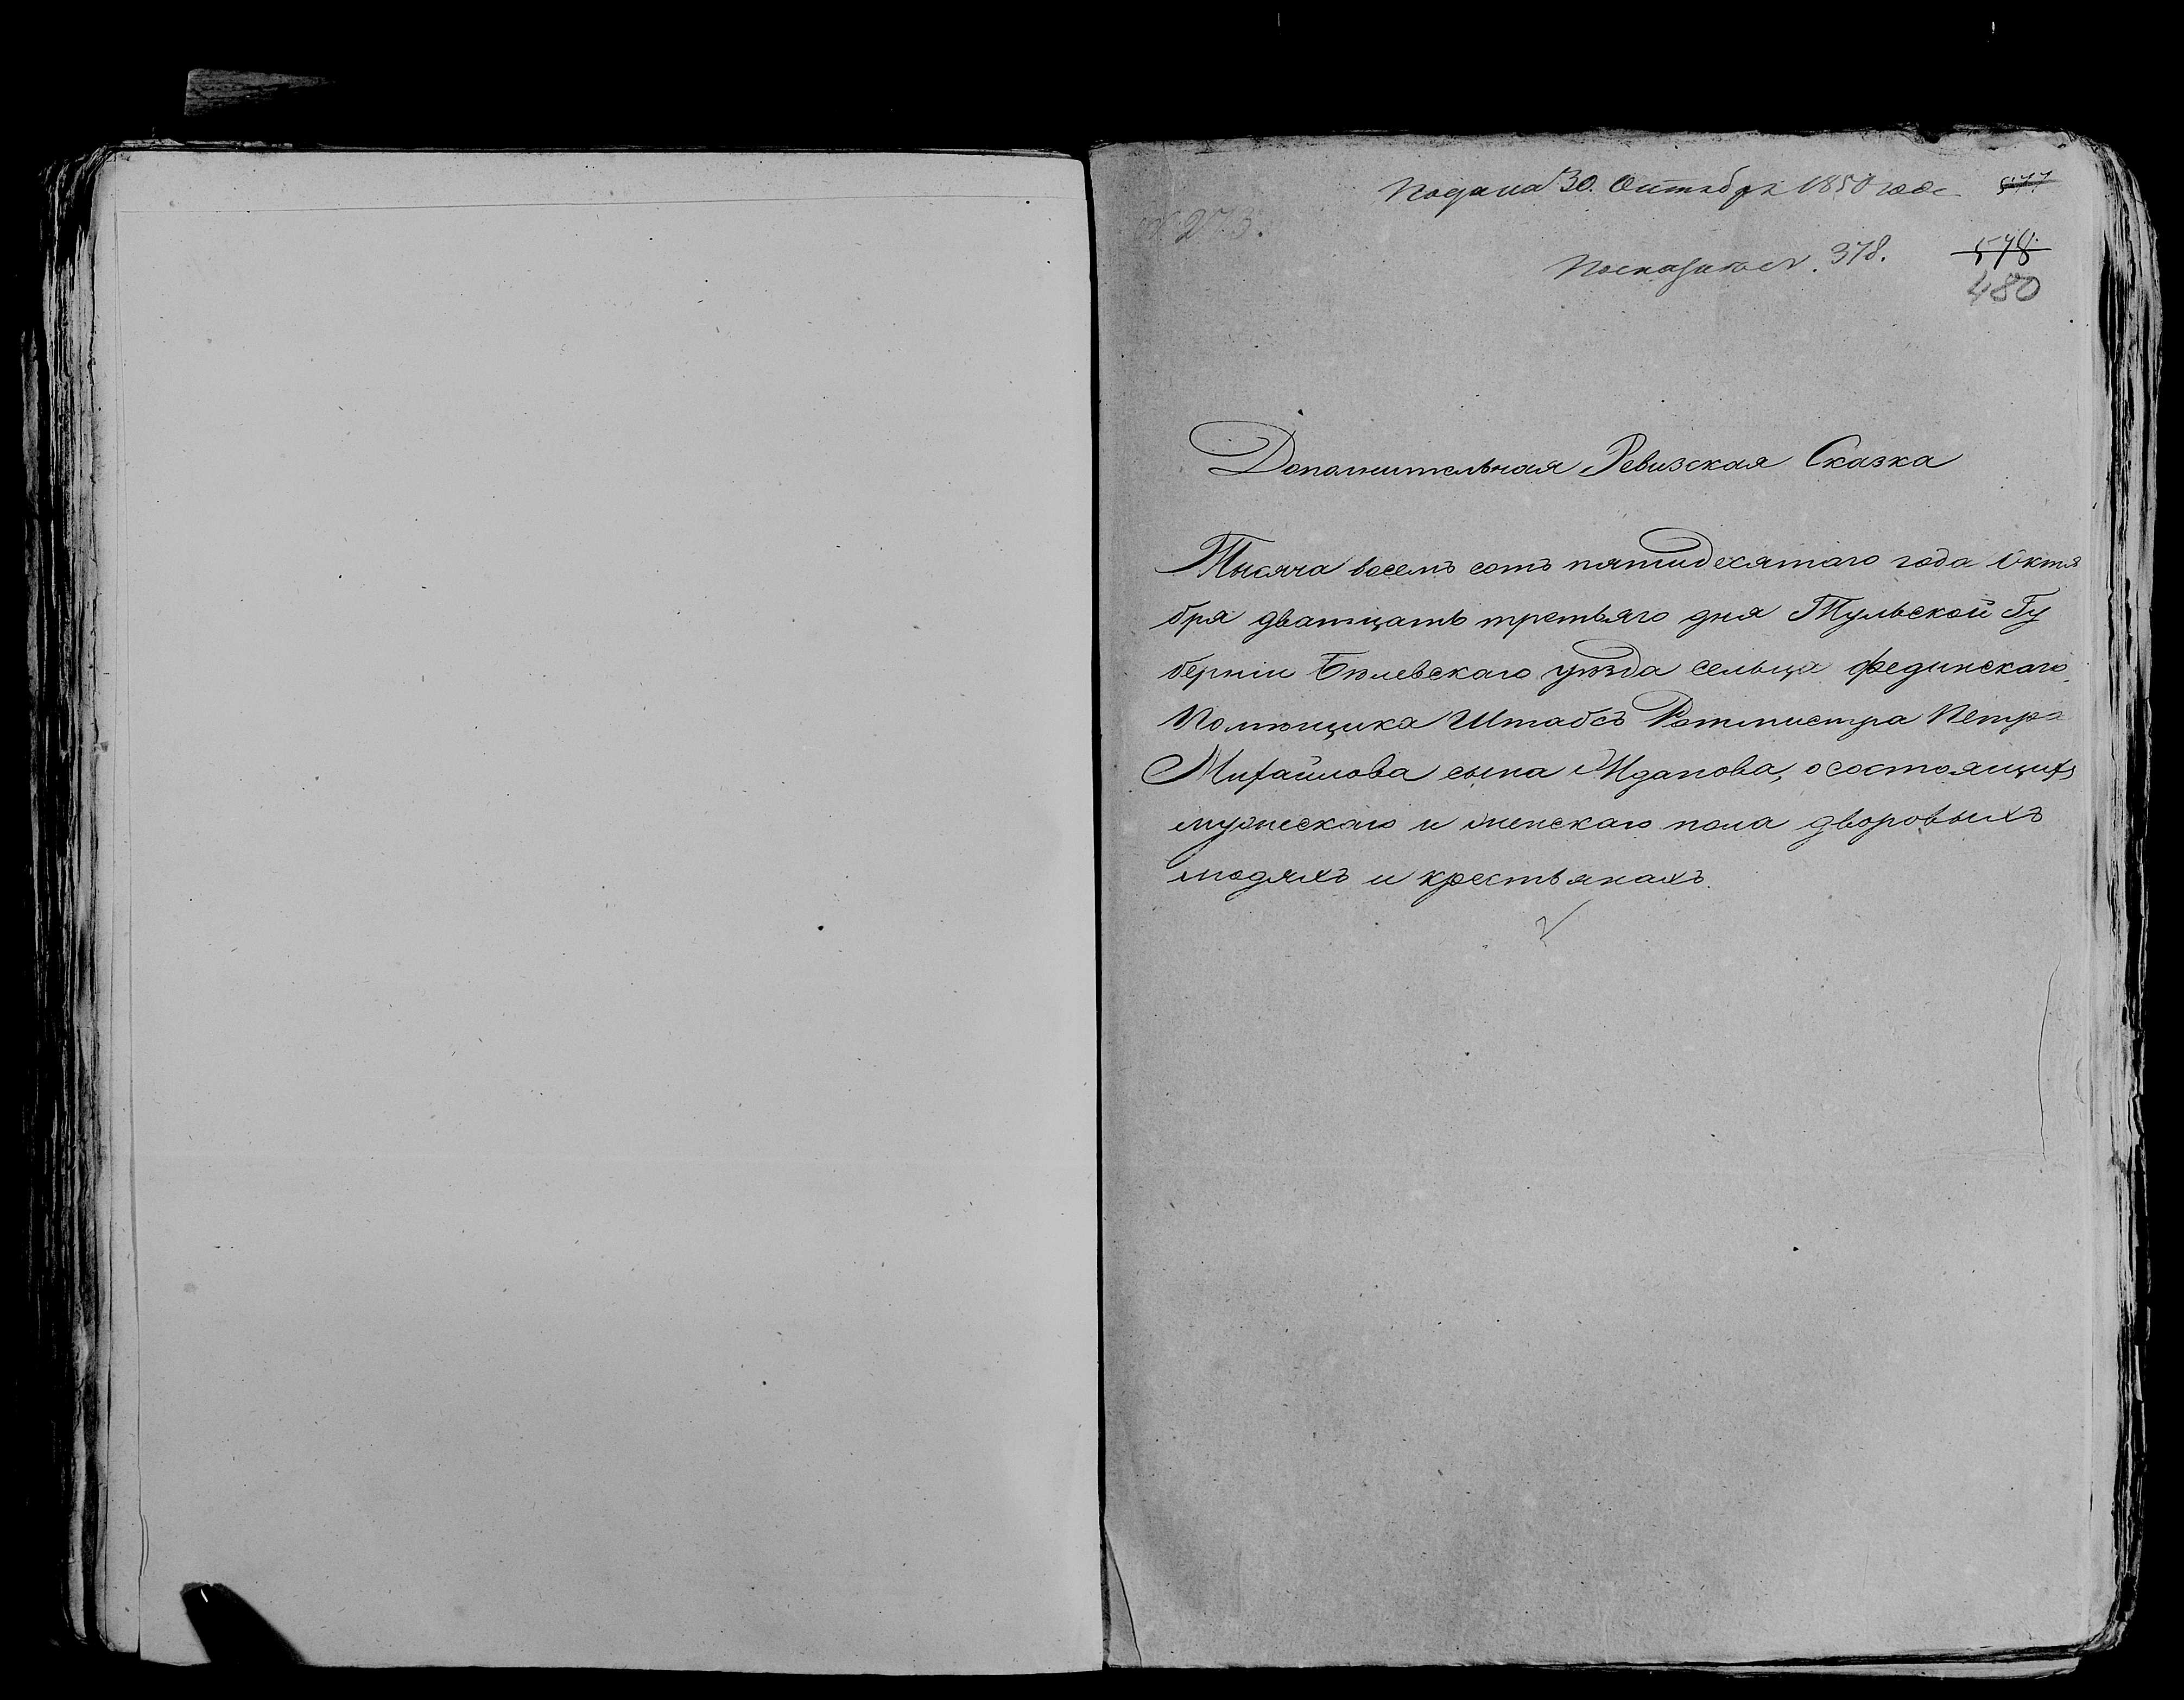 Подана 30. Октября 1850 года 577
№ 273.
578.
№ 378.
480
Дополнительная Ревизская Сказка
Тысяча восемь сотъ пятидесятаго года Октя
бря дватцать третьяго дня Тульской Гу
берніи Бѣлевскаго уѣзда сельца Фединскаго
Помѣщика Штабсъ Ротмистра Петра
Михайлова сына Жданова, о состоящихъ
мужескаго и женскаго пола дворовыхъ
людяхъ и крестьянахъ.